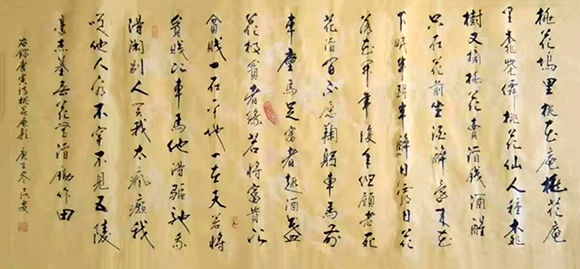 桃花塢里桃花庵桃花庵
里桃花僊桃花仙人種桃
樹又摘桃花賣酒錢酒醒
只在花前坐酒醉還來花
下眠半醒半醉日復日花
落花開年復年但願老死
花酒間不願鞠躬車馬前
車塵馬足富者趣酒盞
花枝貧者緣若將富貴比
貧賤一在平地一在天若將
貧賤比車馬他得驅馳我
得閑別人笑我太瘋癲我
笑他人看不穿不見五陵
豪杰墓無花無酒鋤作田
右錄唐寅詩桃花庵歌 庚子冬